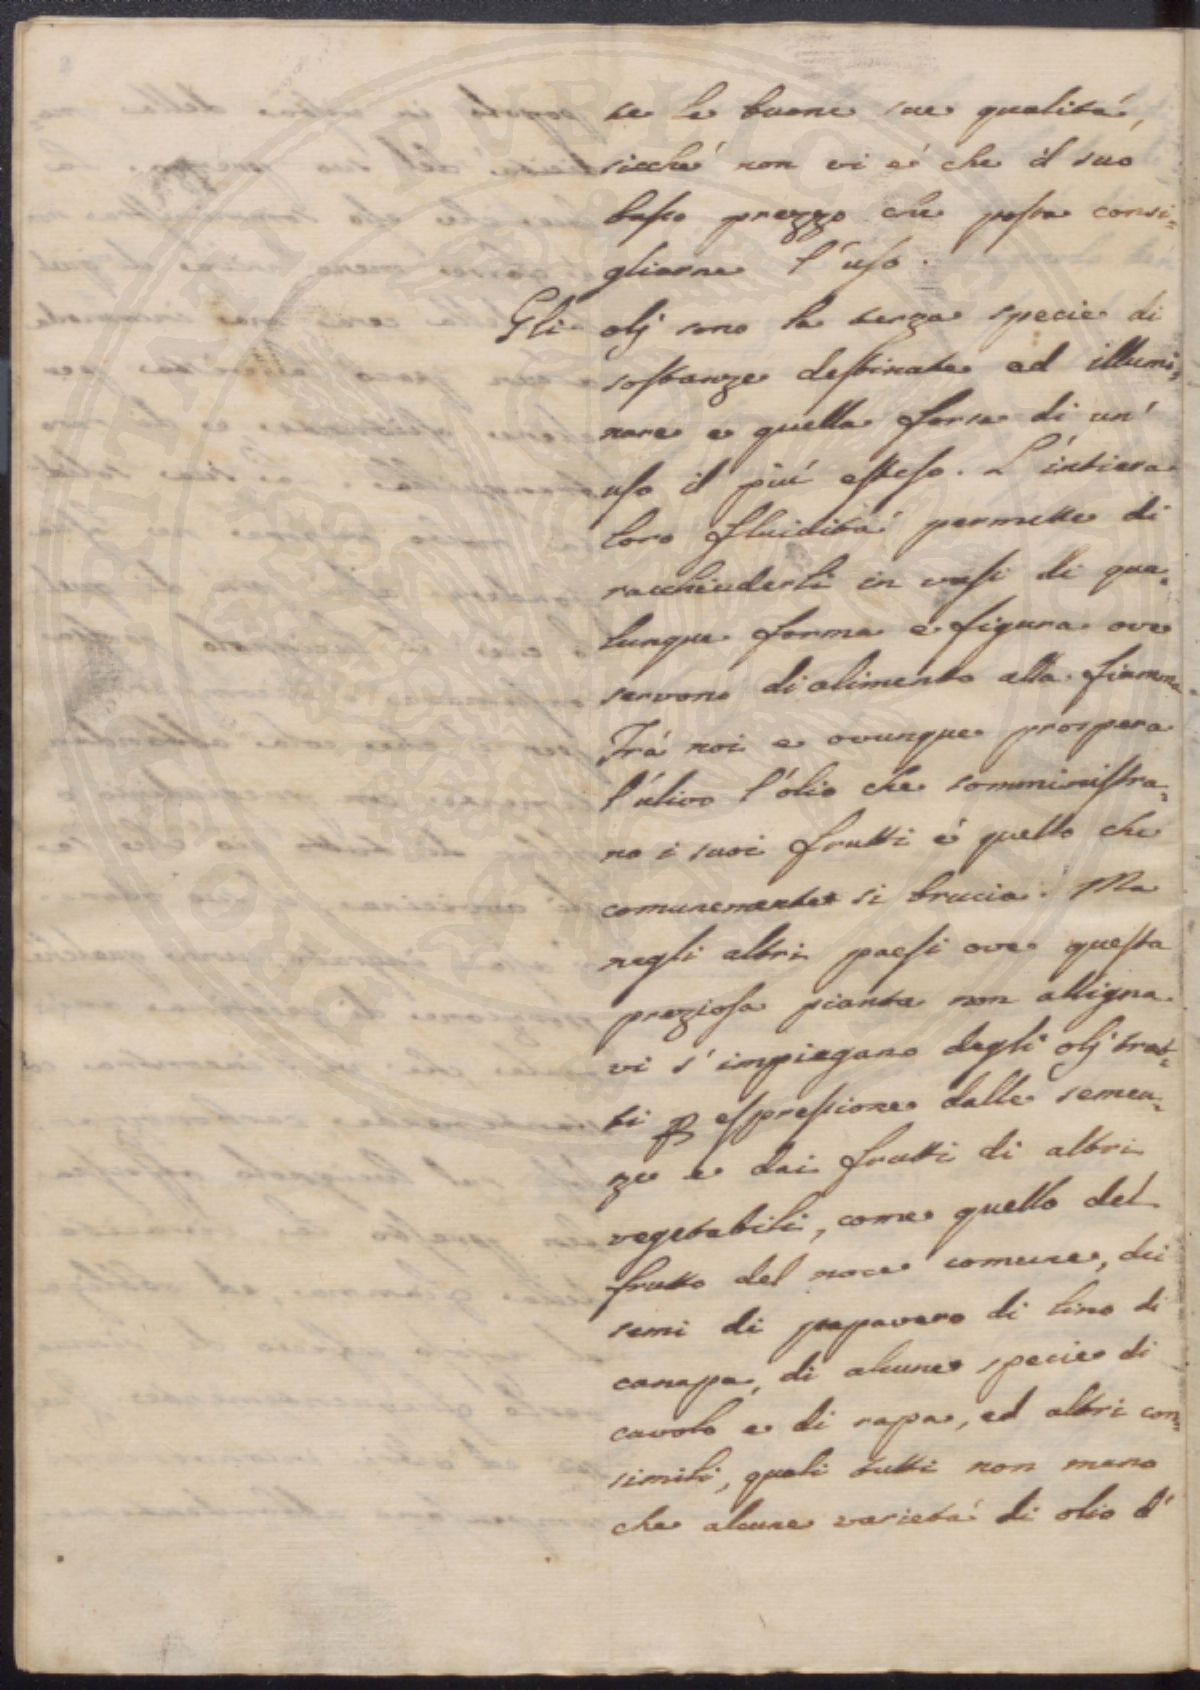 te le buone sue qualità,
sicché non vi é che il suo
basso prezzo che possa consi=
gliarne l'uso.
Gli olj sono la terza specie di
sostanze destinate ad illumi=
nare e quella forse di un'
uso il più esteso. L'intiera
loro fluidità permette di
racchiuderli in vasi di qua=
lunque forma e figura ove
servono di alimento alla fiamma.
Trà noi e ovunque prospera
l'ulivo l'olio che somministra=
no i suoi frutti è quello che
comunemente si brucia. Ma
negli altri paesi ove questa
preziosa pianta non alligna
vi s'impiegano degli olj trat=
ti p espressione dalle semen=
ze e dai frutti di altri
vegetabili, come quello del
frutto del noce comune, dei
semi di papavero di lino di
canapa, di alcune specie di
cavolo e di rapa, ed altri con=
simili, quali tutti non meno
che alcune varietà di olio d'